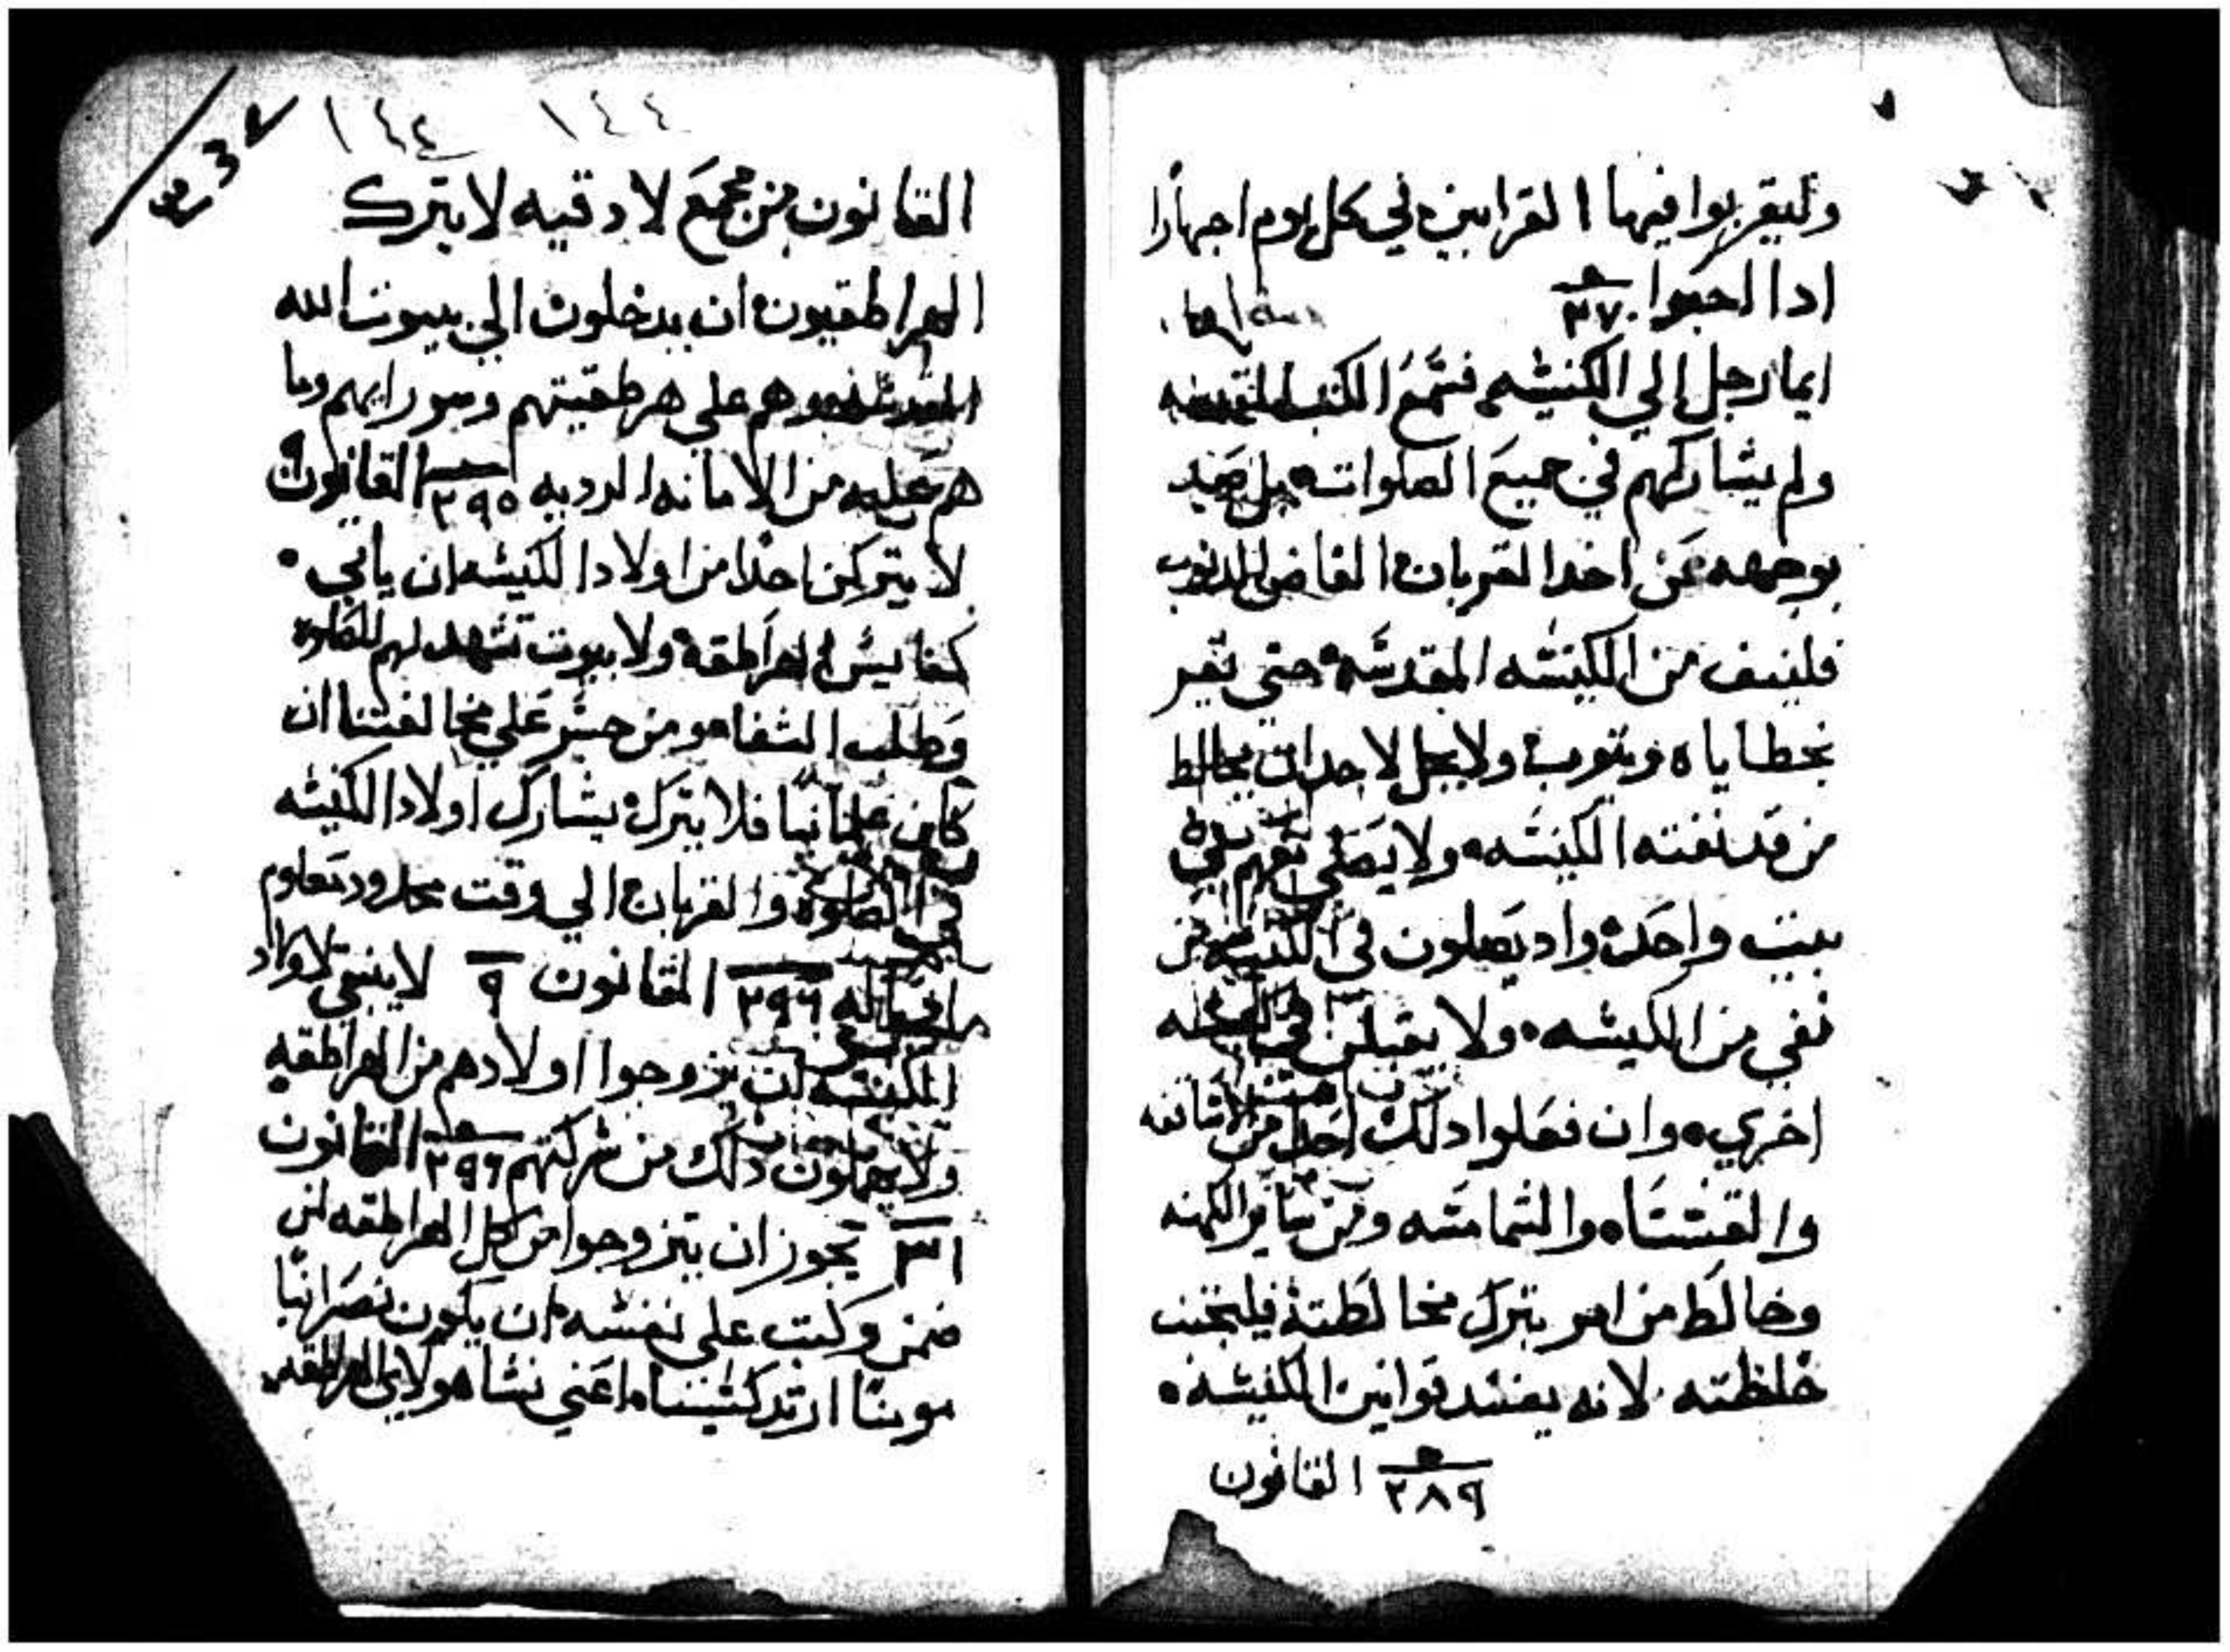 وليقربوا فيها القرابين في كل يوم اجهارًا
ادا احبوا ٣٧
ايما رجل الي الكنيسه فسمع الكتب المقدسه
ولم يشاركهم في جميع الصلوات بل صد
بوجهه عن اخد القربان الغافر الدنوب
فلينف من الكنيسه المقدسه حتي يقر
بخطاياه ويتوب ولا يحل لاحد ان يخالط
من قد نفته الكنيسه ولا يصلي معهم في
بيت واحد واد يصلون في الكنيسه من
نفي من الكنيسه ولا يقبلن في كنيسه
اخري وان فعلوا دلك احد من الاساقفه
والقسساه والشمامسه ومن ساير الكهنه
وخالط من امر بترك مخالطتة فليجتنب
خلطته لانه يفسد قوانين الكنيسه
٢٨٩ القانون
٣٣٧ ١٤٤ ١٤٤
القانون من مجمع لادقيه لا يترك
الهراطقيون ان يدخلون الي بيوت الله
المقدسه وهم علي هرطقيتهم وسو رايهم وما
هم عليه من الامانه الرديه ٢٩٥ القانون
لا يتركن احدا من اولاد الكنيسه ان ياتي
كنايس الهراطقه ولا بيوت تشهد لهم للصلوه
وطلب الشفا ومن جسر علي مخالفتنا ان
كان علمانيا فلا يترك يشارك اولاد الكنيسه
في الصلوة والقربان الي وقت محدود معلوم
٢٩٦ القانون ٩ لا ينبغي لاولاد
الكنيسه ان يزوجوا اولادهم من الهراطقه
ولا دلك من شركتهم ٢٩٦ القانون
٣١ يجوز ان يتزوجوا من كل الهراطقه لمن
ضمن وكتب علي نفسه ان يكون نصرانيا
مومنا ارتدكسيا اعني نسا هولاي الهراطقه